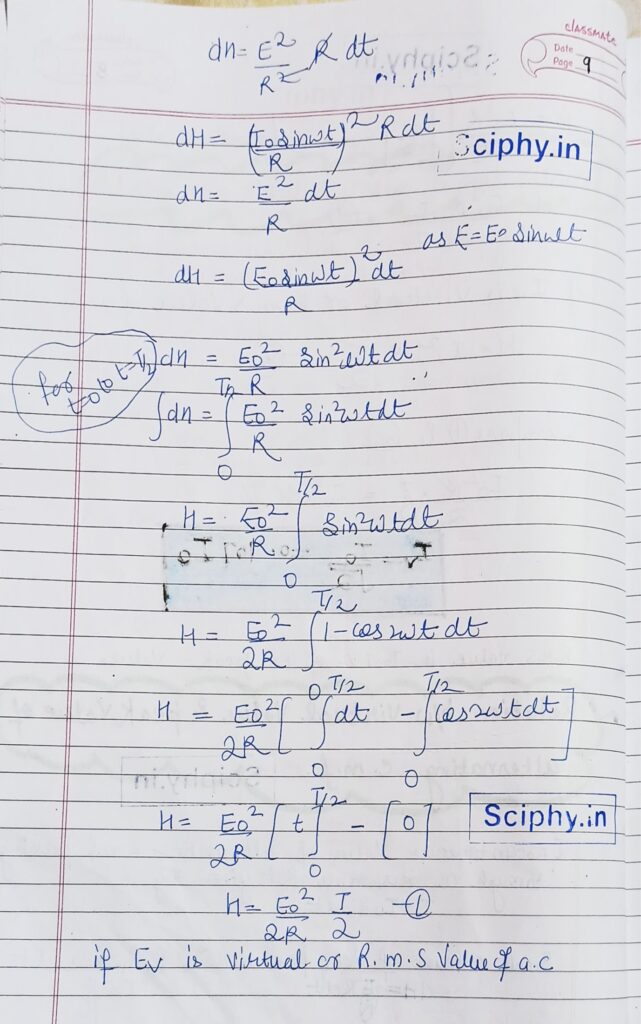 classmate
Date
Page 9
dH = E²/R² R dt
dH = (I₀ sinωt/R)² R dt
Sciphy.in
dH = E²/R dt
as E = E₀ sinωt
dH = (E₀ sinωt)²/R dt
for t=0 to t=T/2
dH = E₀²/R sin²ωt dt
∫dH = ∫₀^(T/2) E₀²/R sin²ωt dt
H = E₀²/R ∫₀^(T/2) sin²ωt dt
H = E₀²/2R ∫₀^(T/2) 1 - cos 2ωt dt
H = E₀²/2R [∫₀^(T/2) dt - ∫₀^(T/2) cos 2ωt dt]
H = E₀²/2R [t]₀^(T/2) - [0]
Sciphy.in
H = E₀²/2R T/2 -①
if Ev is virtual or R.m.s value of a.c